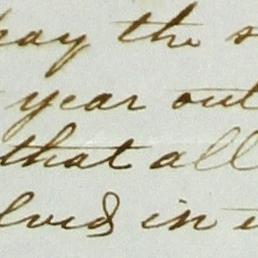 pay the s
year out
that all
lved in